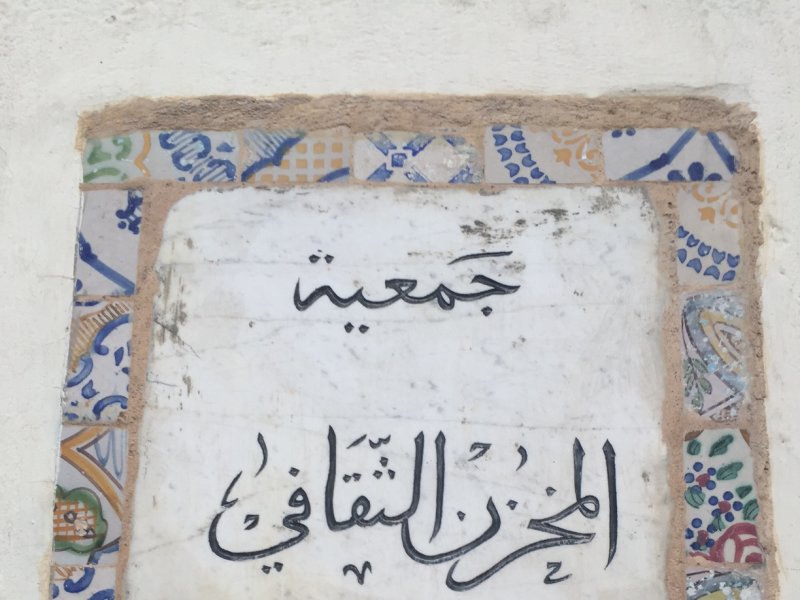 جمعية
المخزن الثقافي